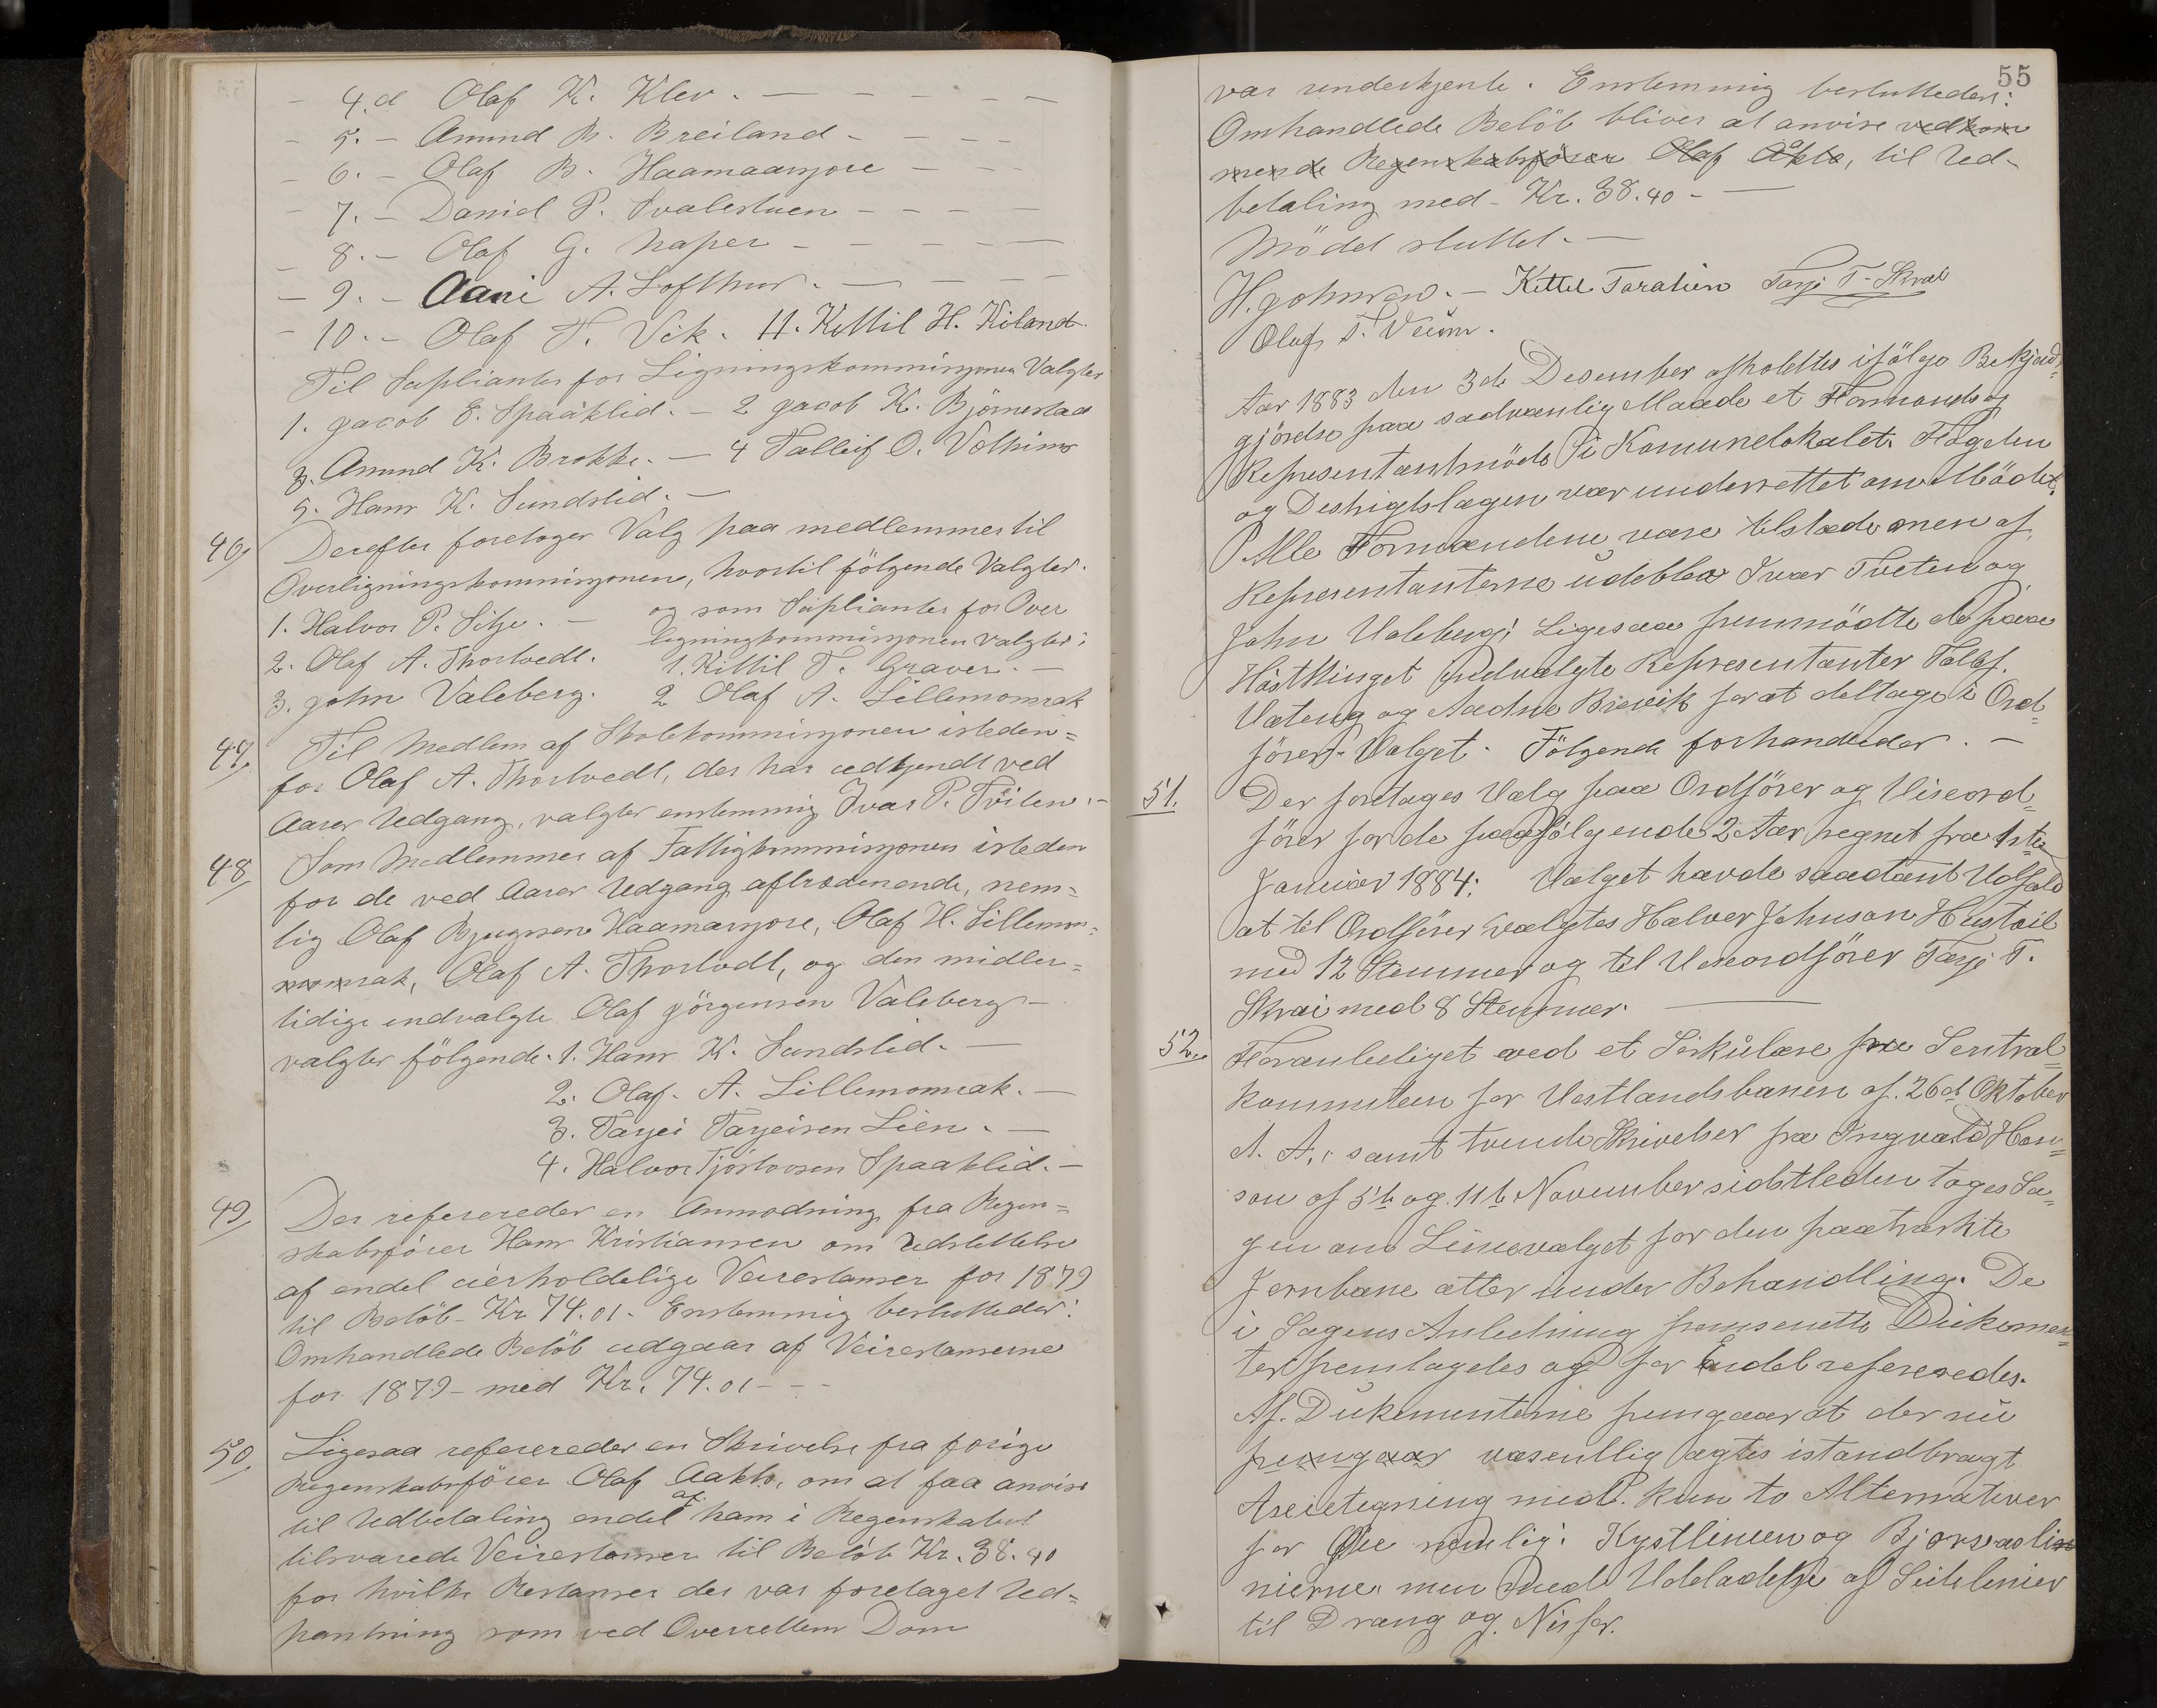 4.d Olaf K. Klev. — — — — —
— 5. – Amund B. Breiland – — — —
— 6. – Olaf B. Haamaaryore — — —
— 7. – Daniel P. Svalestuen – — — —
— 8. – Olaf G. Naper – — — — —
— 9. – Aani A. Lofthus. — — — —
— 10. – Olaf T. Vik. 11. Kittil H. Kiland.
Til Suplianter for Ligningskommisjonen Valgtes
1. Jacob E. Spaaklid. – 2 Jacob K. Björnestad
3. Amund K. Brokke. – 4 Talleif O. Vothims
5. Hans K. Sundslid. —
46, Derefter foretoges Valg paa medlemmer til
Overligningskommisjonen, hvortil fölgende Valgtes.
1. Halvor P. Sitje. – og som Suplianter for Over
2. Olaf A. Thortvedt. ligningkommisjonen valgtes:
1. Kittil T. Graver. —
3. John Valeberg. 2 Olaf A. Lillemonrak
47, Til Medlem af Skolekommisjonen isteden=
for Olaf A. Thortvedt, der har udtjendt ved
Aarets Udgang, valgtes enstemmig Ivar P. Tveiten. –
48, Som Medlemmer af Fattigkommisjonen isteden
for de ved Aarets Udgang aftrædenende, nem=
lig Olaf Bjugsson Haamaryore, Olaf H. Lillemon=
monrak, Olaf A. Thortvedt, og den midler=
tidige indvalgte Olaf Jörgensen Valeberg –
valgtes fölgende. 1. Hans K. Sundslid. —
2. Olaf. A. Lillemonrak. —
3. Tarjei Tarjeisen Lien. —
4. Halvor Tjöstovsen Spaaklid. —
49, Der refereredes en Anmodning fra Regen=
skabsförer Hans Kristiansen om Udslettelse
af endel uerholdelige Veirestanser for 1879
til Belöb – Kr 74.01 – Enstemmig besluttedes:
Omhandlede Belöb udgaar af Veirestanserne
for 1879 – med Kr. 74.01 – – –
50, Ligesaa refereredes en Skrivelse fra forige
Regenskabsförer Olaf Aakte, om at faa anvise
til Udbetaling endel af ham i Regenskabet
tilsvarede Veirestanser til Belöb Kr. 38.40
for hvilke Restanser der var foretaget Ud=
pantning som ved Overrettens Dom
55
var underkjente. Enstemmig besluttedes:
Omhandlede Belöb bliver at anvise vedkom
mende Regenskabsförer Olaf Åkte, til Ud-
betaling med – Kr. 38.40 – —
Mödet sluttet. —
H. Johnsen. – Kittil Taraldlien Tarje T – Skrai
Olaf T. Veum.
Aar 1883 den 3de Desember afholdtes ifölge Bekjend=
gjörelse paa sædvanlig Maade et Formands og
Representantmöde i Komunelokalet. Fogden
og Destrigtslægen var underrettet om Mödet.
Alle Formændene vare tilstæde men af
Representanterne udeblev Ivar Tveten og
John Valeberg; Ligesaa fremmödte de paa
Hösttinget indvalgte Representanter Tallef.
Vateng og Aadne Breivik for at deltage i Ord=
förer Valget. Fölgende forhandledes. —
51. Der foretages Valg paa Ordförer og Viseord=
förer for de paafölgende 2 Aar, regnet fra 1ste
Januar 1884: Valget havde saadant Udfald
at til Ordförer valgtes Halver Johnson Hustveit
med 12 Stemmer og til Viseordförer Tarje T.
Skrai med 8 Stemmer. ———
52, Foranlediget ved et Sirkulære fra Sentral=
komniteen for Vestlandsbanen af. 26d Oktober
d. A., samt tvende Skrivelser fra Ingvald Han=
son af 5te og. 11te November sidstleden toges Sa=
gen om Linievalget for den paatænkte
Jernbane atter under Behandling. De
i Sagens Anledning fremsendte Dukomen=
ter fremlagdes og for Endel refereredes.
Af. Dukementerne fremgaar at der nu
fremgaar væsentlig agtes istandbragt
Axeietegning med. kun to Alternativer
for Öie nemlig: Kystlinien og Bjorvasli
nierne. men med Udeladelse af Sidelinier
til Drang og. Nisser.